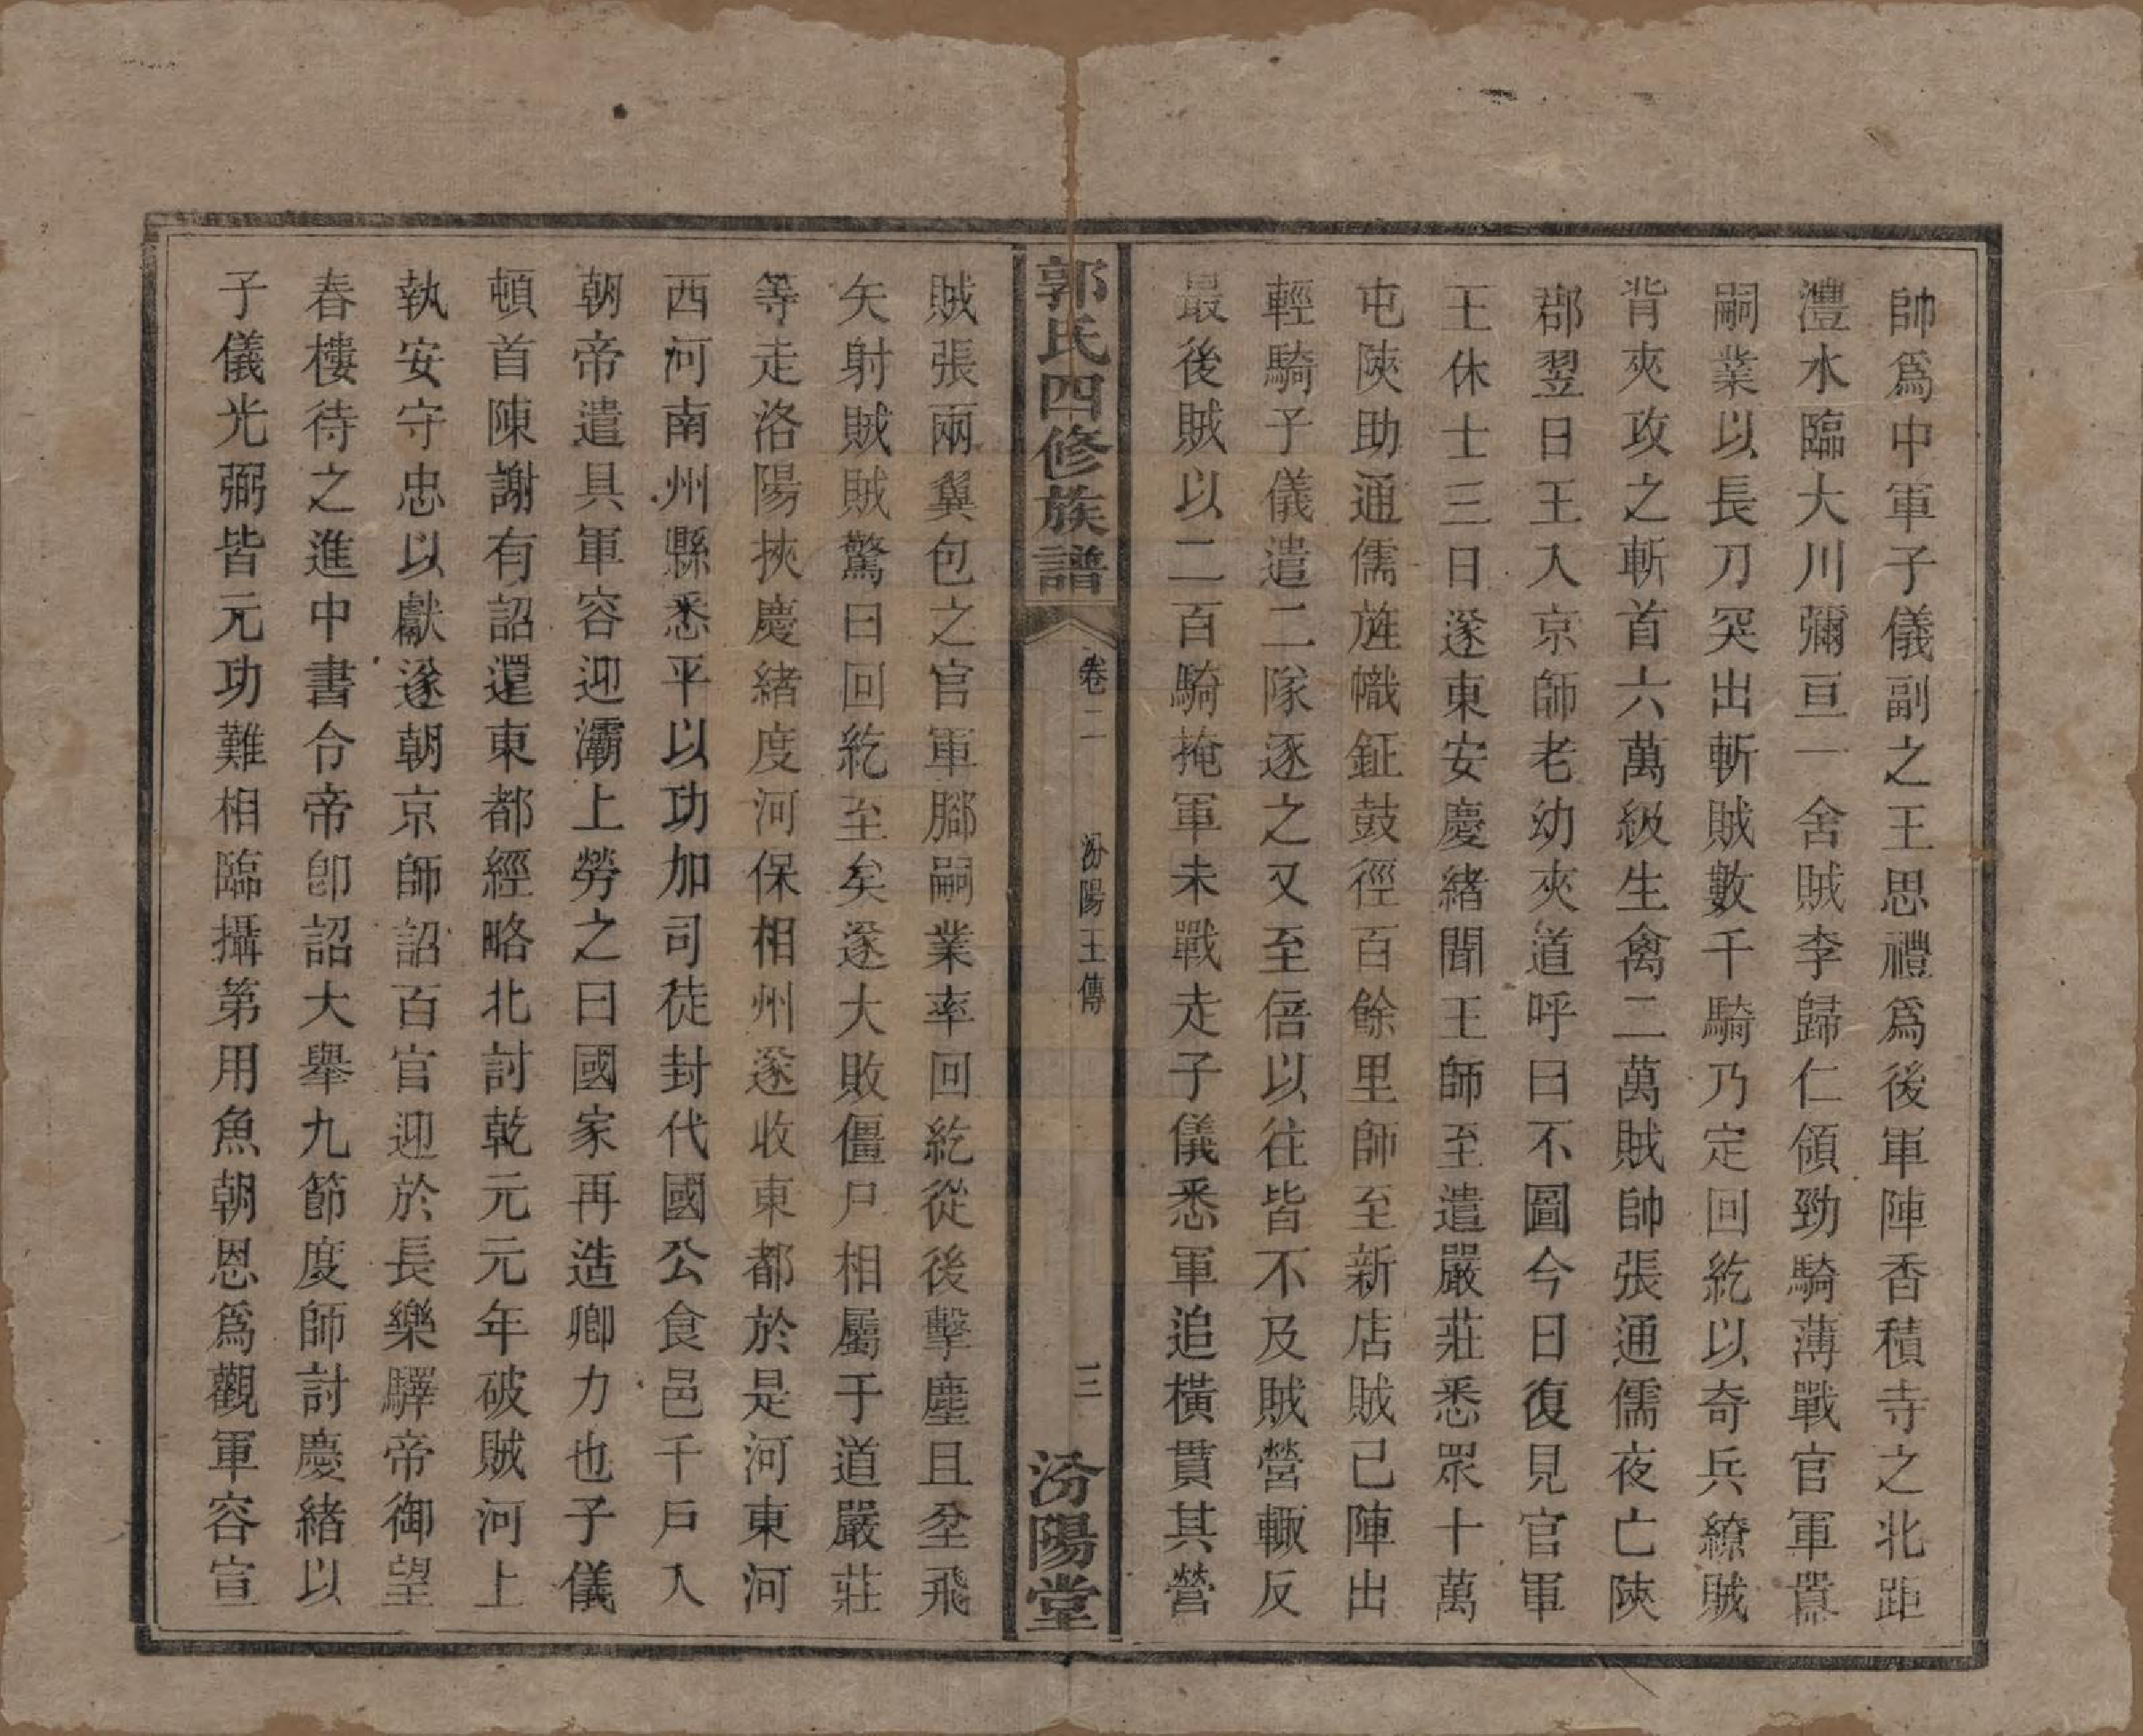 帥爲中軍子儀副之王思禮爲後軍陣香積寺之北距
澧水臨大川彌亘一舍賊李歸仁領勁騎薄戰官軍囂
嗣業以長刀突出斬賊數千騎乃定回紇以奇兵繚賊
背夾攻之斬首六萬級生禽二萬賊帥張通儒夜亡陝
郡翌日王入京師老幼夾道呼曰不圖今日復見官軍
王休士三日遂東安慶緒聞王師至遣嚴莊悉眾十萬
屯陝助通儒旌幟鉦鼓徑百餘里師至新店賊已陣出
輕騎子儀遣二隊逐之又至倍以往皆不及賊營輙反
最後賊以二百騎掩軍未戰走子儀悉軍追橫貫其營
郭氏四修族譜
卷二
汾陽王傳
三
汾陽堂
賊張兩翼包之官軍腳嗣業率回紇從後擊塵且坌飛
矢射賊賊驚曰回紇至矣遂大敗僵尸相屬于道嚴莊
等走洛陽挾慶緒度河保相州遂收東都於是河東河
西河南州縣悉平以功加司徒封代國公食邑千戶入
朝帝遣具軍容迎灞上勞之曰國家再造卿力也子儀
頓首陳謝有詔還東都經略北討乾元元年破賊河上
執安守忠以獻遂朝京師詔百官迎於長樂驛帝御望
春樓待之進中書令帝卽詔大舉九節度師討慶緒以
子儀光弼皆元功難相臨攝第用魚朝恩爲觀軍容宣